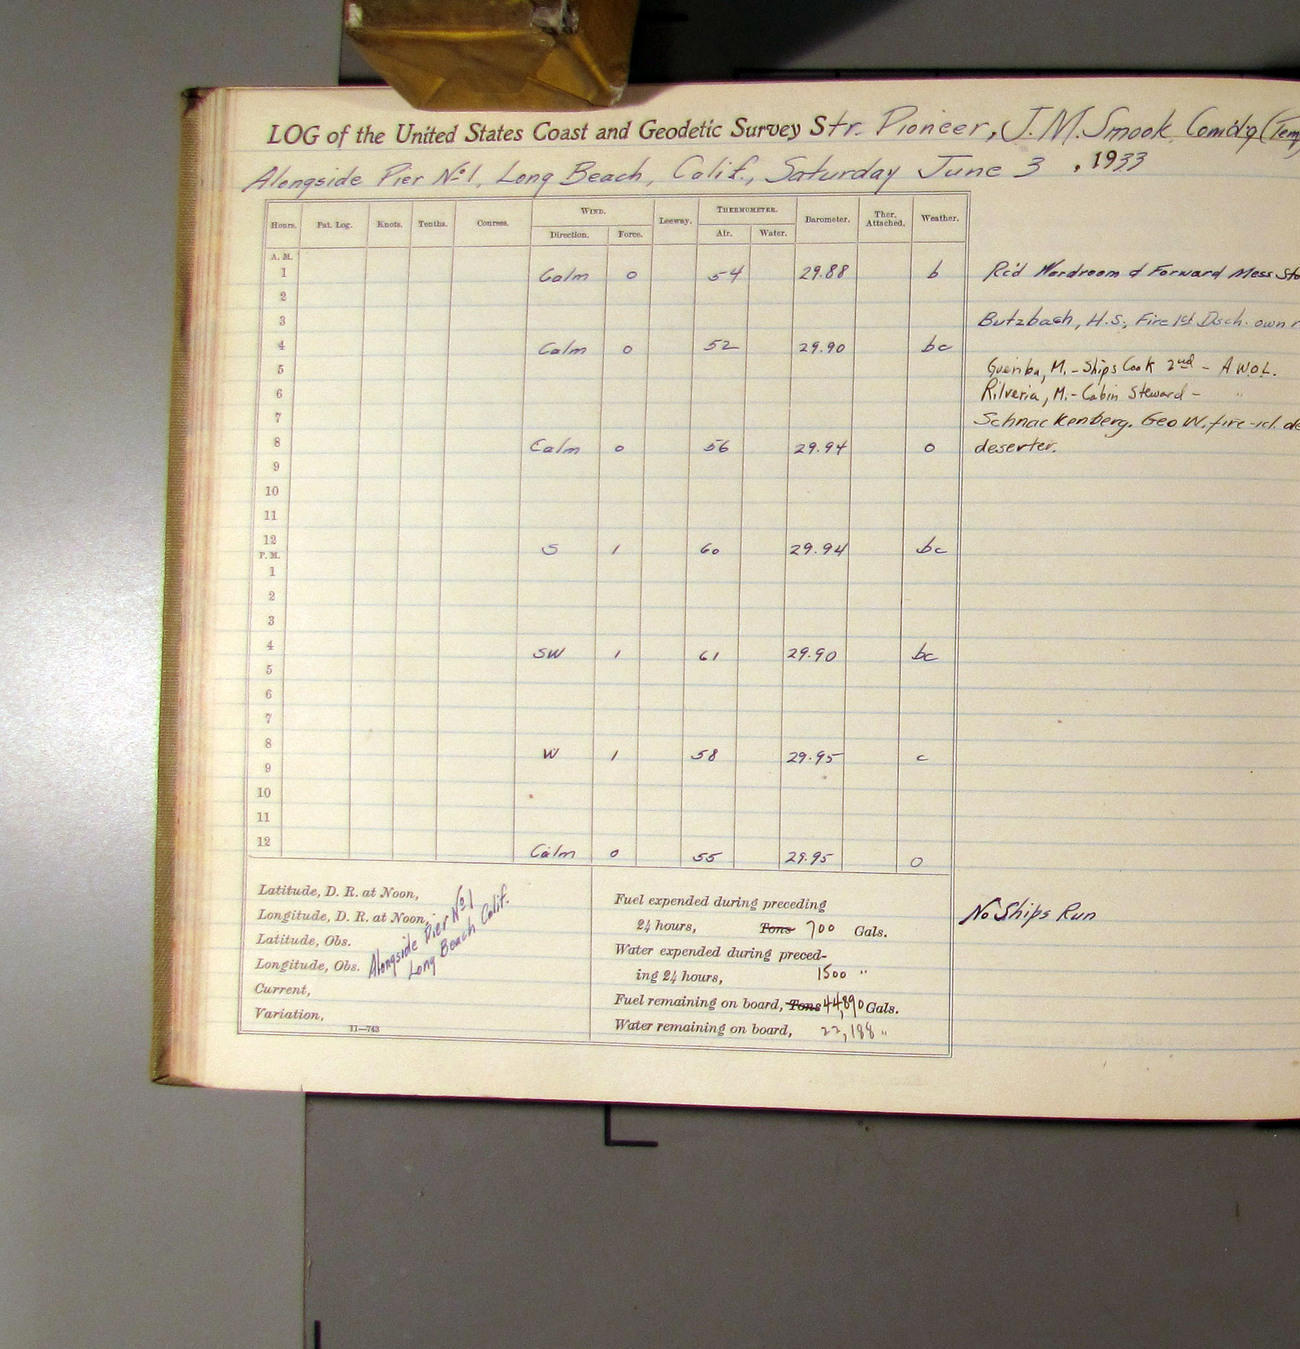 LOG of the United States Coast and Geodetic Survey Str. Pioneer, J. M. Smook Comd'g (Tem
Alongside Pier No. 1, Long Beach, Calif., Saturday June 3, 1933
Hours. Pat. Log. Knots. Tenths. Courses. WIND. Direction. Force. Leeway. THERMOMETER. Air. Water. Barometer. Ther. Attached. Weather.
A. M.
1 Calm 0 54 29.88 b Rc'd Wardroom & Forward Mess Sto
2
3 Butzbach, H.S., Fire 1st Disch. own r
4 Calm 0 52 29.90 bc
5 M. - Ships Cook 2nd - A.W.O.L.
6 Rilveria, M. - Cabin Steward - "
7 Schnackenberg, Geo W. fire-1cl. de
8 Calm 0 56 29.94 o deserter.
9
10
11
12 S 1 60 29.94 bc
P. M.
1
2
3
4 SW 1 61 29.90 bc
5
6
7
8 W 1 58 29.95 c
9
10
11
12 Calm 0 55 29.95 o
Latitude, D. R. at Noon,
Longitude, D. R. at Noon,
Latitude, Obs.
Longitude, Obs.
Current,
Variation,
Alongside Pier No. 1
Long Beach Calif.
11—743
Fuel expended during preceding
24 hours, Tons 700 Gals.
Water expended during preced-
ing 24 hours, 1500 "
Fuel remaining on board, Tons 44,890 Gals.
Water remaining on board, 22,188 "
No Ships Run